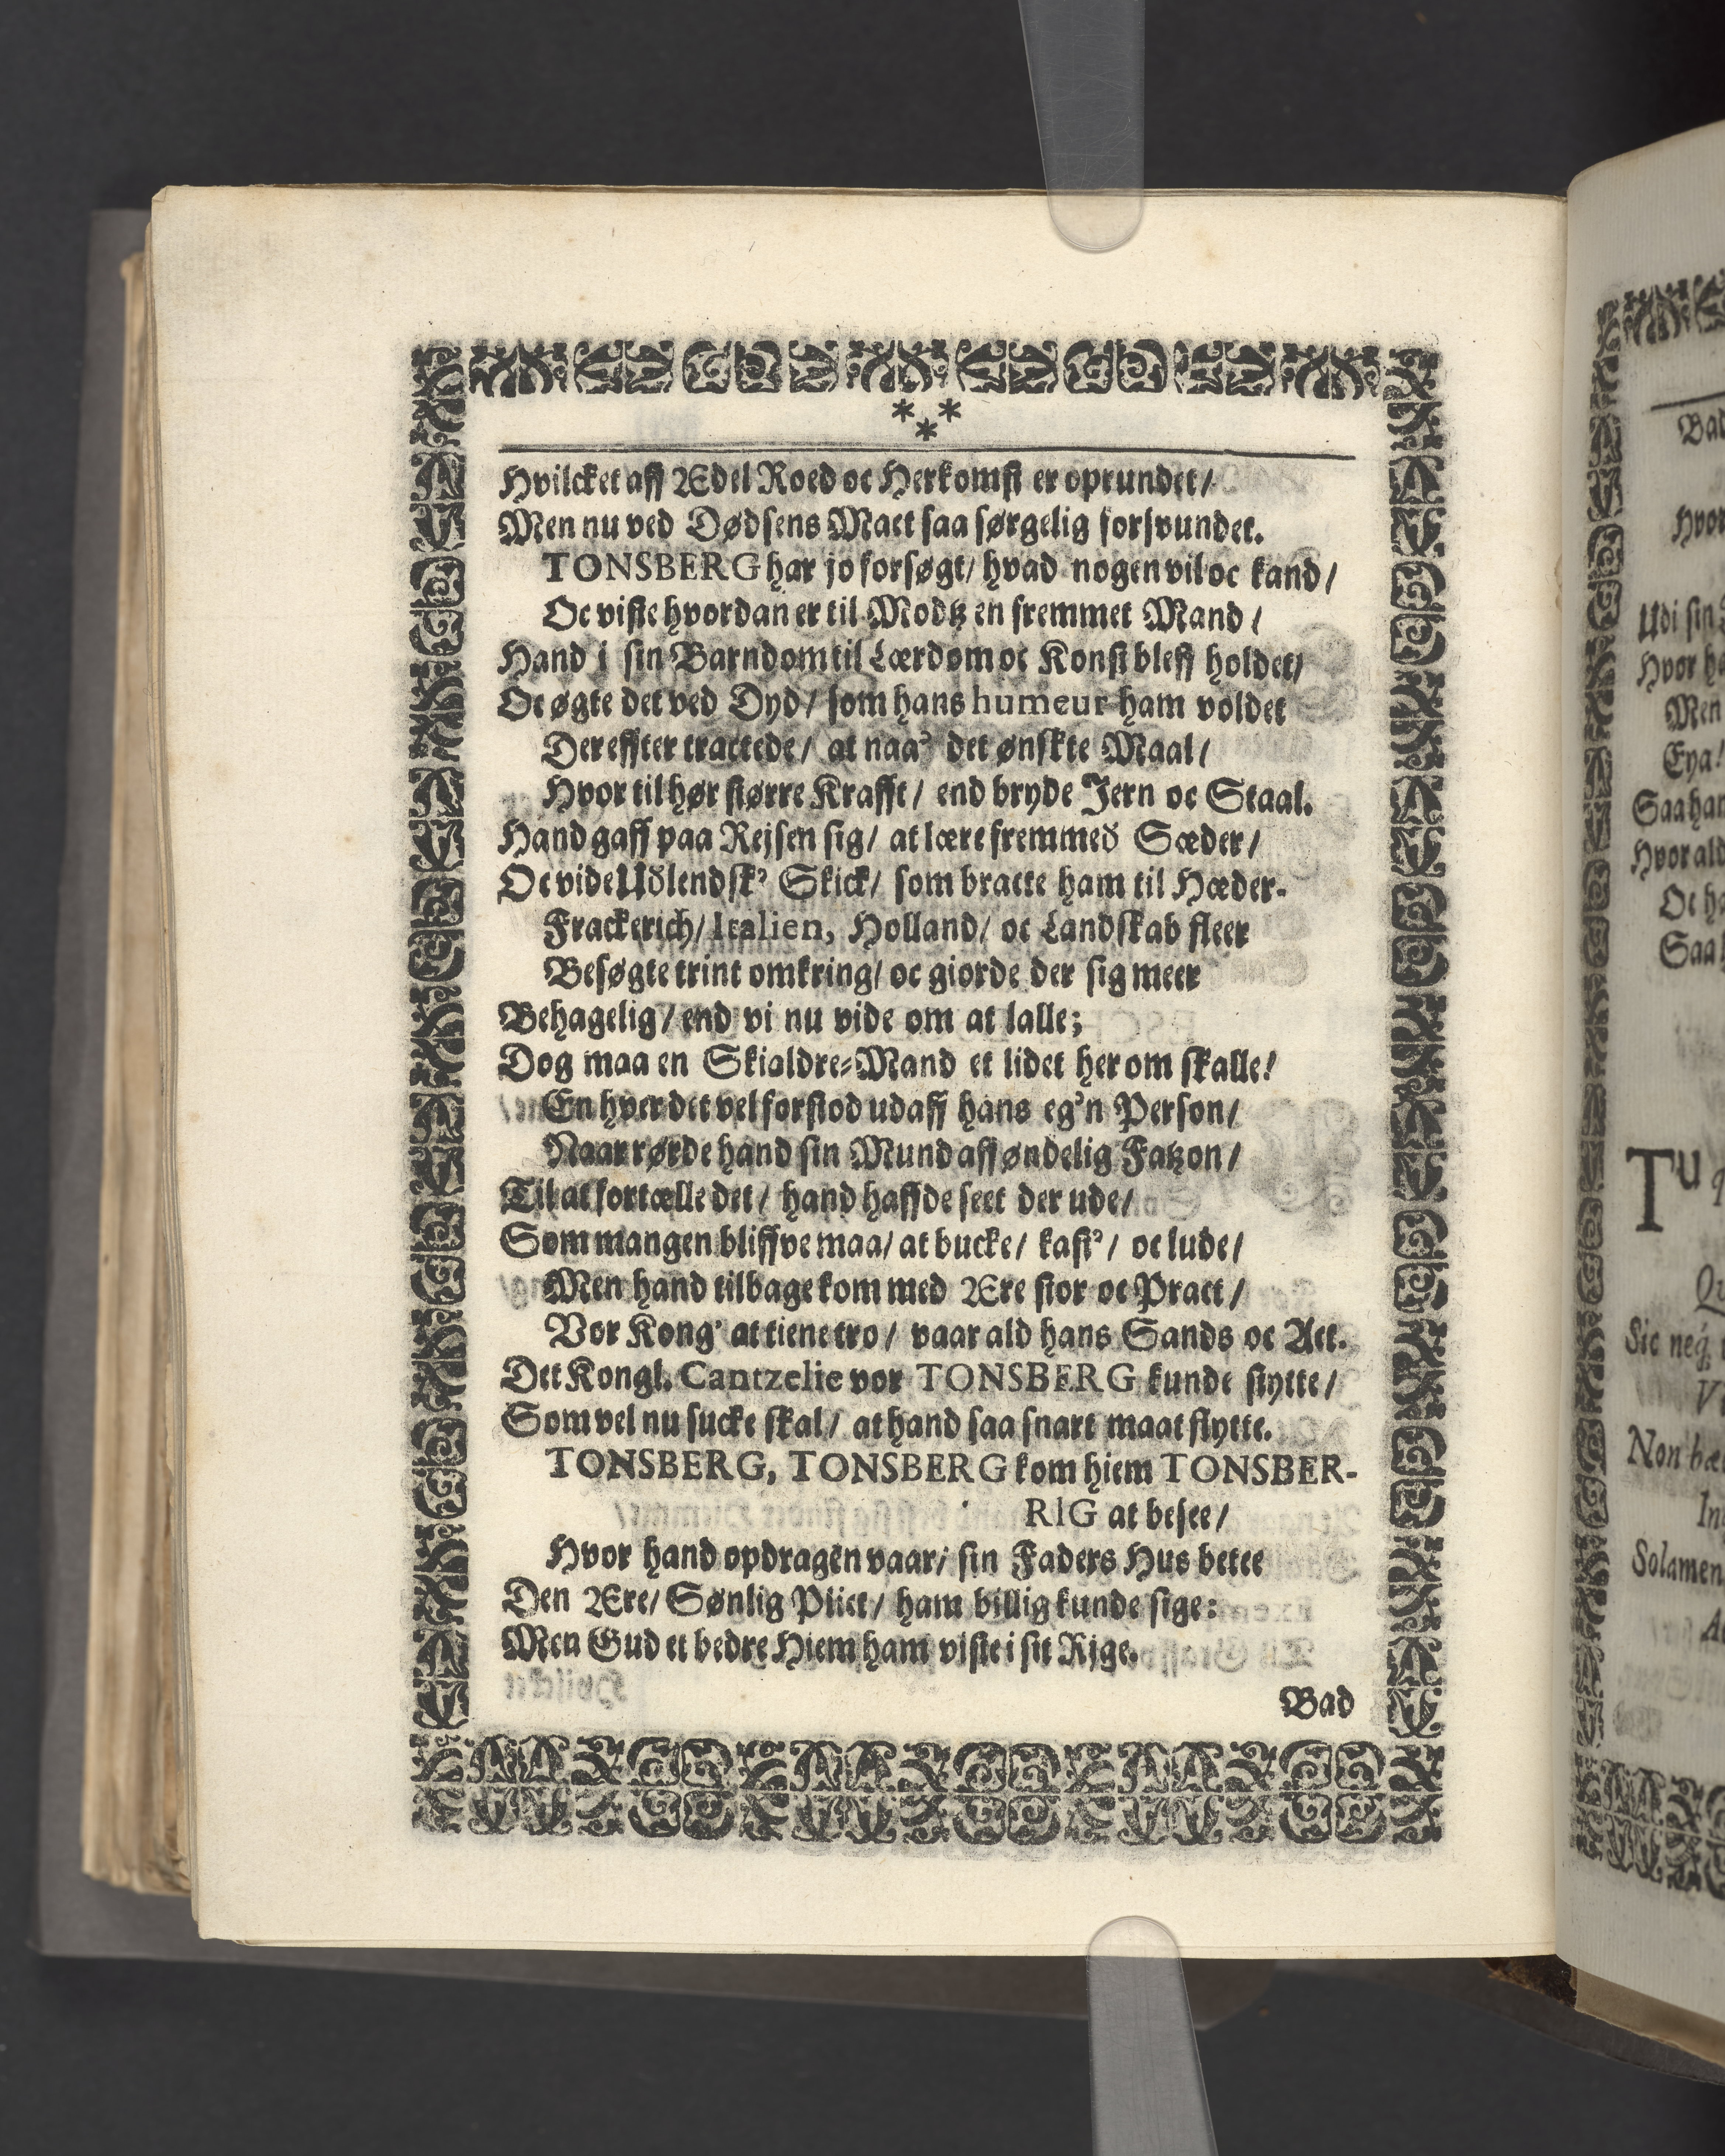 * * *
Hvilcket aff Ædel Roed oc Herkomst er oprundet/
Men nu ved Dødsens Mact saa sørgelig forsvundet.
TONSBERG har jo forsøgt/ hvad nogen vil oc kand/
Oc viste hvordan er til Modtz en fremmet Mand/
Hand j sin Barndom til Lærdom oc Konst bleff holdet/
Oc øgte det ved Dyd/ som hans humeur ham voldet
Dereffter tractede/ at naa' det ønskte Maal/
Hvor til hør større Krafft/ end bryde Jern oc Staal.
Hand gaff paa Rejsen sig/ at lære fremmed Sæder/
Oc vide Udlendsk' Skick/ som bracte ham til Hæder.
Frackerich/ Italien, Holland/ oc Landskab fleer
Besøgte trint omkring/ oc giorde der sig meer
Behagelig/ end vi nu vide om at lalle;
Dog maa en Skialdre-Mand et lidet her om skalle!
En hver det vel forstod udaff hans eg'n Person/
Naar rørde hand sin Mund aff øndelig Fatzon/
Til at fortælle det/ hand haffde seet der ude/
Som mangen bliffve maa/ at bucke/ kast'/ oc lude/
Men hand tilbage kom med Ære stor oc Pract/
Vor Kong' at tiene tro/ vaar ald hans Sands oc Act.
Det Kongl. Cantzelie vor TONSBERG kunde stytte/
Som vel nu sucke skal/ at hand saa snart maat flytte.
TONSBERG, TONSBERG kom hiem TONSBER-
RIG at besee/
Hvor hand opdragen vaar/ sin Faders Hus betee
Den Ære/ Sønlig Plict/ ham billig kunde sige:
Men Gud et bedre Hiem ham viste i sit Rige.
Bad
Bad
Hvor
Udi sin
Men
Eya!
Saa
Tu
Sic neq;
Non
Solamen